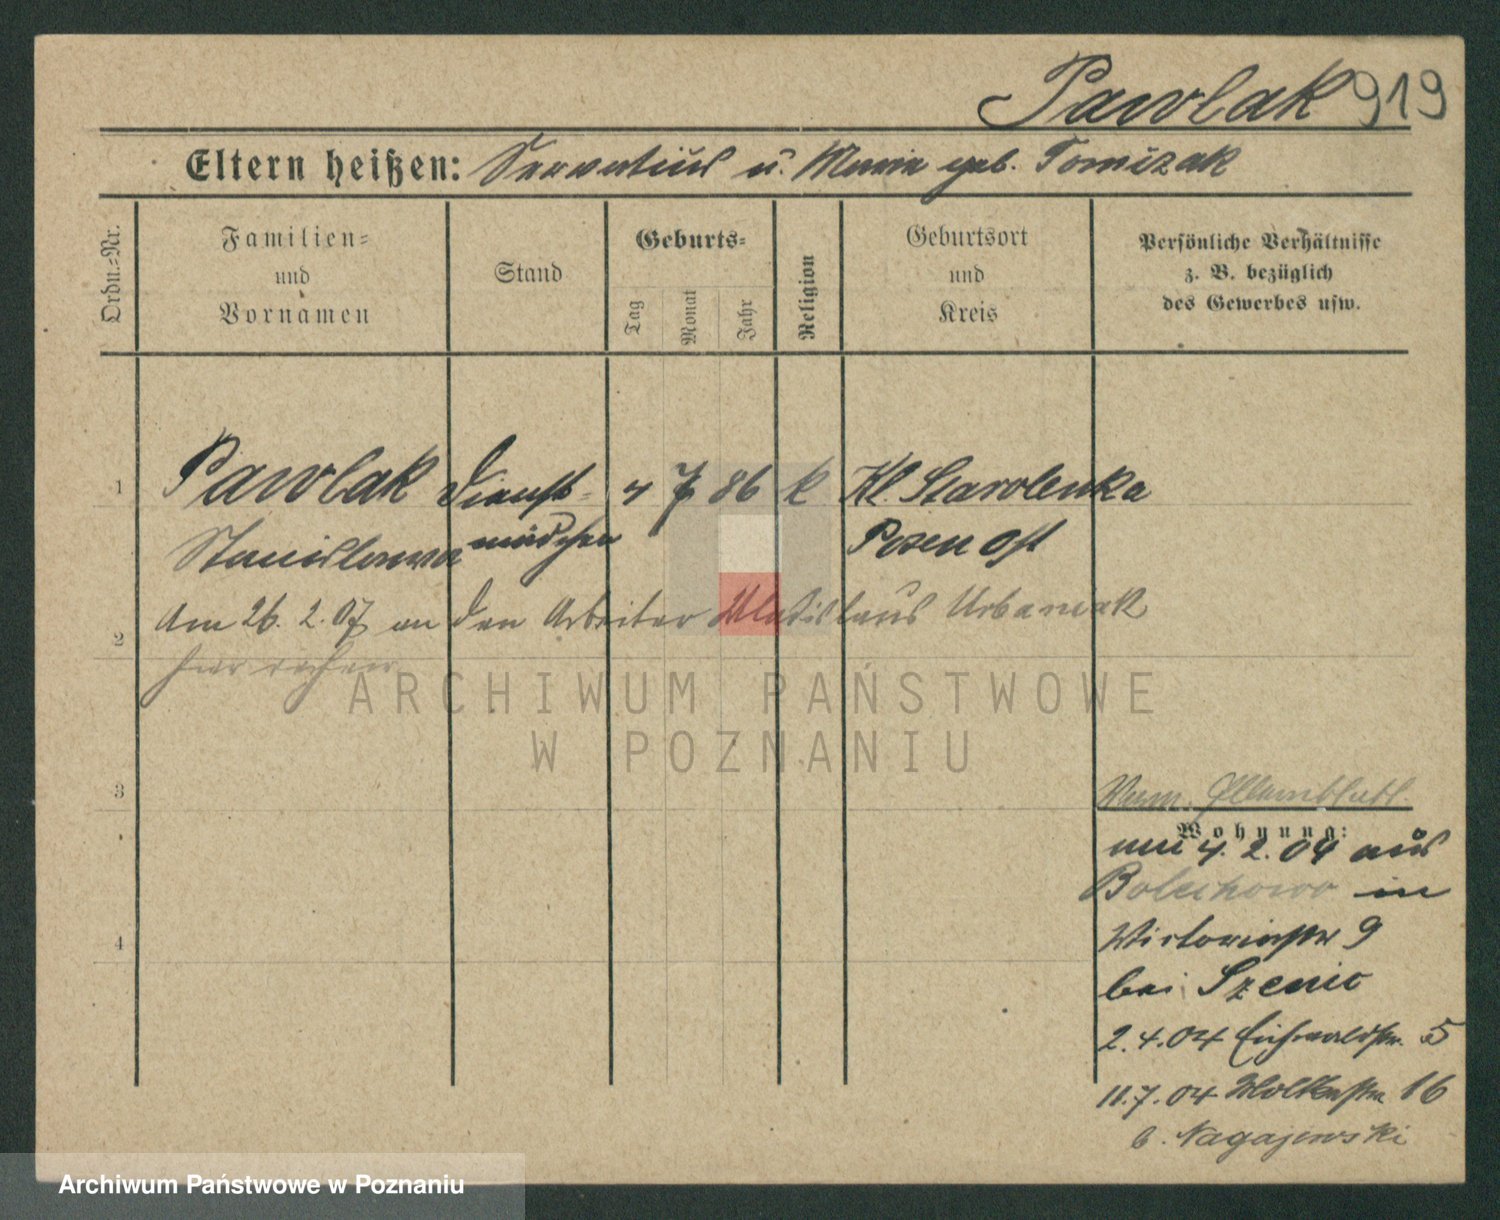 Pawlak 919
Eltern heißen: Servatius u. Maria geb. Tomizak
Ordn.-Nr.
Familien-
und
Vornamen
Stand
Geburts-
Tag
Monat
Jahr
Religion
Geburtsort
und
Kreis
Persönliche Verhältnisse
z. B. bezüglich
des Gewerbes usw.
1 Pawlak Dienst- 4 7 86 k Kl. Starolenka
Stanislawa mädchen Posen Ost
Am 26. 2. 07 an den Arbeiter Wladislaus Urbaniak
2 hier
3
Wohnung:
4. 2. 04 aus
Bolechowo in
Victoriastr 9
bei Szenic
4
2. 4. 04 Eichwaldstr. 5
11. 7. 04 Moltkestr 16
b. Nagajewski
ARCHIWUM PAŃSTWOWE
W POZNANIU
Archiwum Państwowe w Poznaniu